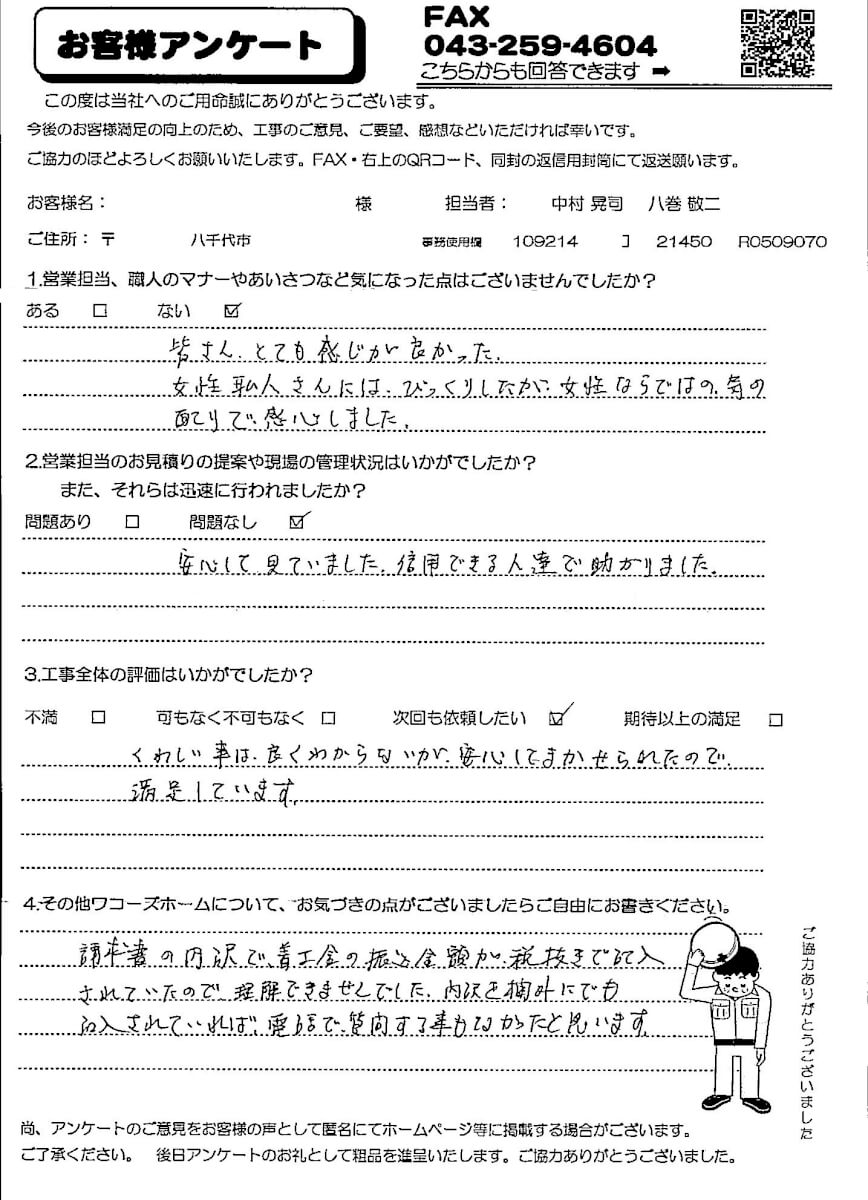 お客様アンケート
FAX
043-259-4604
こちらからも回答できます ➡
この度は当社へのご用命誠にありがとうございます。
今後のお客様満足の向上のため、工事のご意見、ご要望、感想などいただければ幸いです。
ご協力のほどよろしくお願いいたします。FAX・右上のQRコード、同封の返信用封筒にて返送願います。
お客様名： 様 担当者： 中村 晃司 八巻 敬二
ご住所：〒 八千代市 事務使用欄 109214 コ 21450 R0509070
1.営業担当、職人のマナーやあいさつなど気になった点はございませんでしたか？
ある □ ない ☑
皆さん、とても感じが良かった。
女性職人さんには、びっくりしたが、女性ならではの、気の
配りで、感心しました。
2.営業担当のお見積りの提案や現場の管理状況はいかがでしたか？
また、それらは迅速に行われましたか？
問題あり □ 問題なし ☑
安心して見ていました。信用できる人達で助かりました。
3.工事全体の評価はいかがでしたか？
不満 □ 可もなく不可もなく □ 次回も依頼したい ☑ 期待以上の満足 □
くわしい事は、良くわからないが、安心してまかせられたので、
満足しています。
4.その他ワコーズホームについて、お気づきの点がございましたらご自由にお書きください。
請求書の内訳で、着工金の振込金額が、税抜きで記入
されていたので、理解できませんでした。内訳を欄外にでも
記入されていれば、電話で、質問する事もなかったと思います。
ご協力ありがとうございました
尚、アンケートのご意見をお客様の声として匿名にてホームページ等に掲載する場合がございます。
ご了承ください。 後日アンケートのお礼として粗品を進呈いたします。ご協力ありがとうございました。